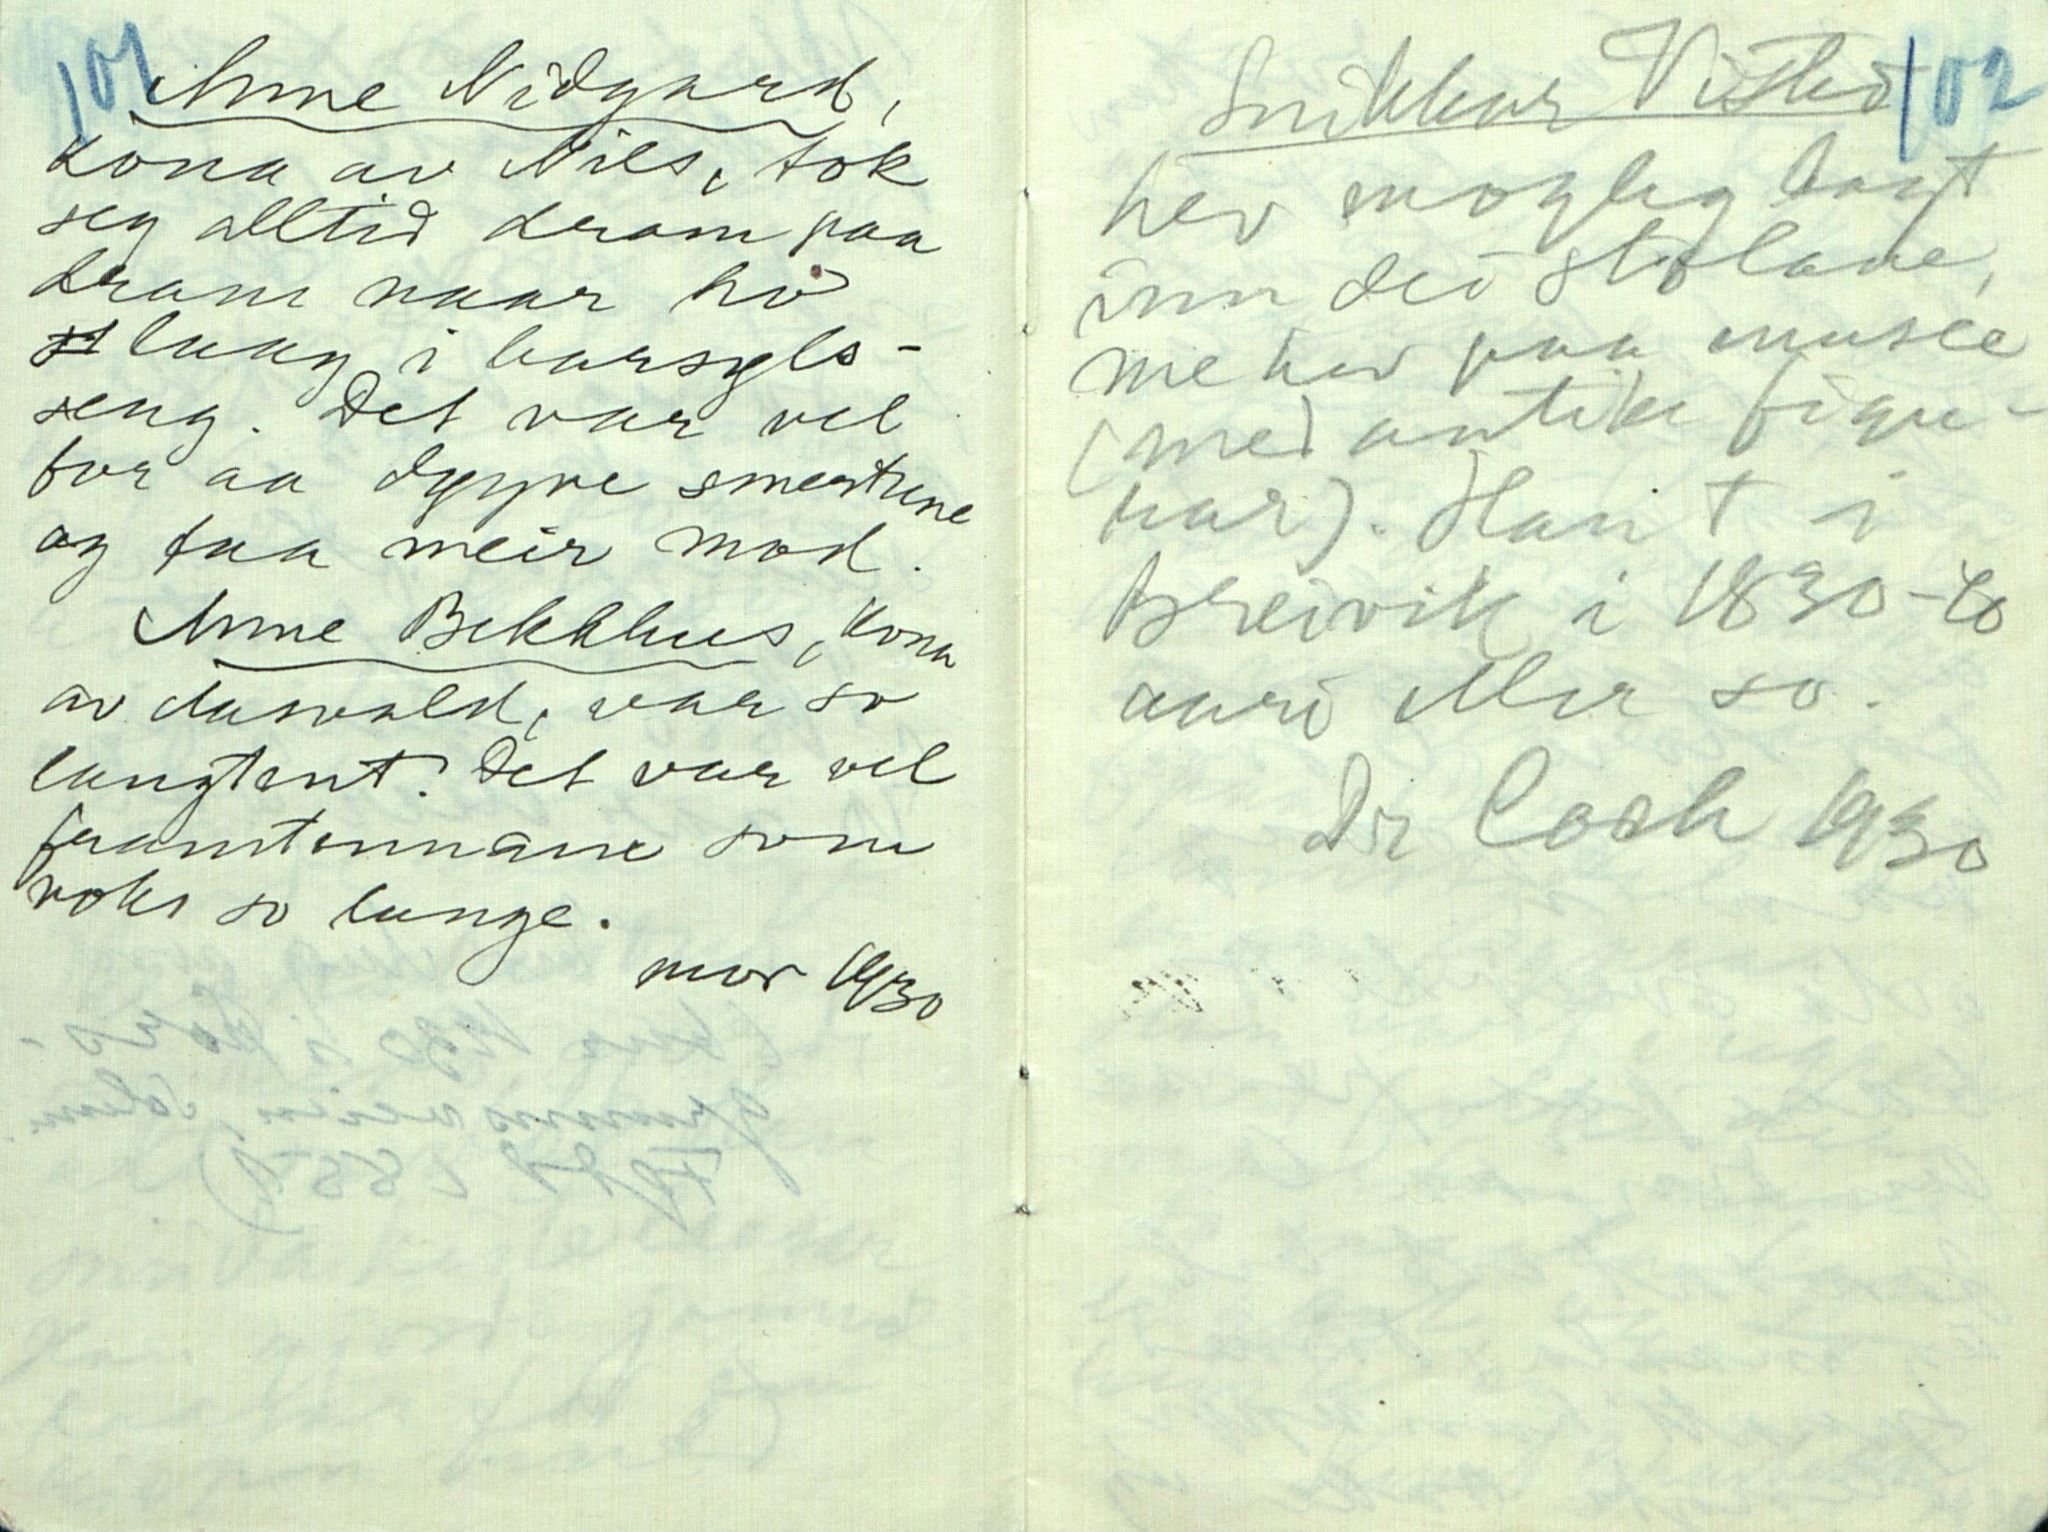 101
Anne Nidgard,
kona av Nils, tok
seg alltid dram paa
dram naar ho
laag i barsyls-
seng. Det var vel
for aa døyve smertune
og faa meir mod.
Anne Bekkhus, kona
av Aasvald, var so
langtent. Det var vel
framtennane som
voks so lange.
mor 1930
102
Snikkar Vistad
hev mogleg bragt
inn dei stolane,
me hev paa musée
(med antike figu-
rar). Han † i
Breivik i 1830-40
aari eller so.
Dr Coch 1930